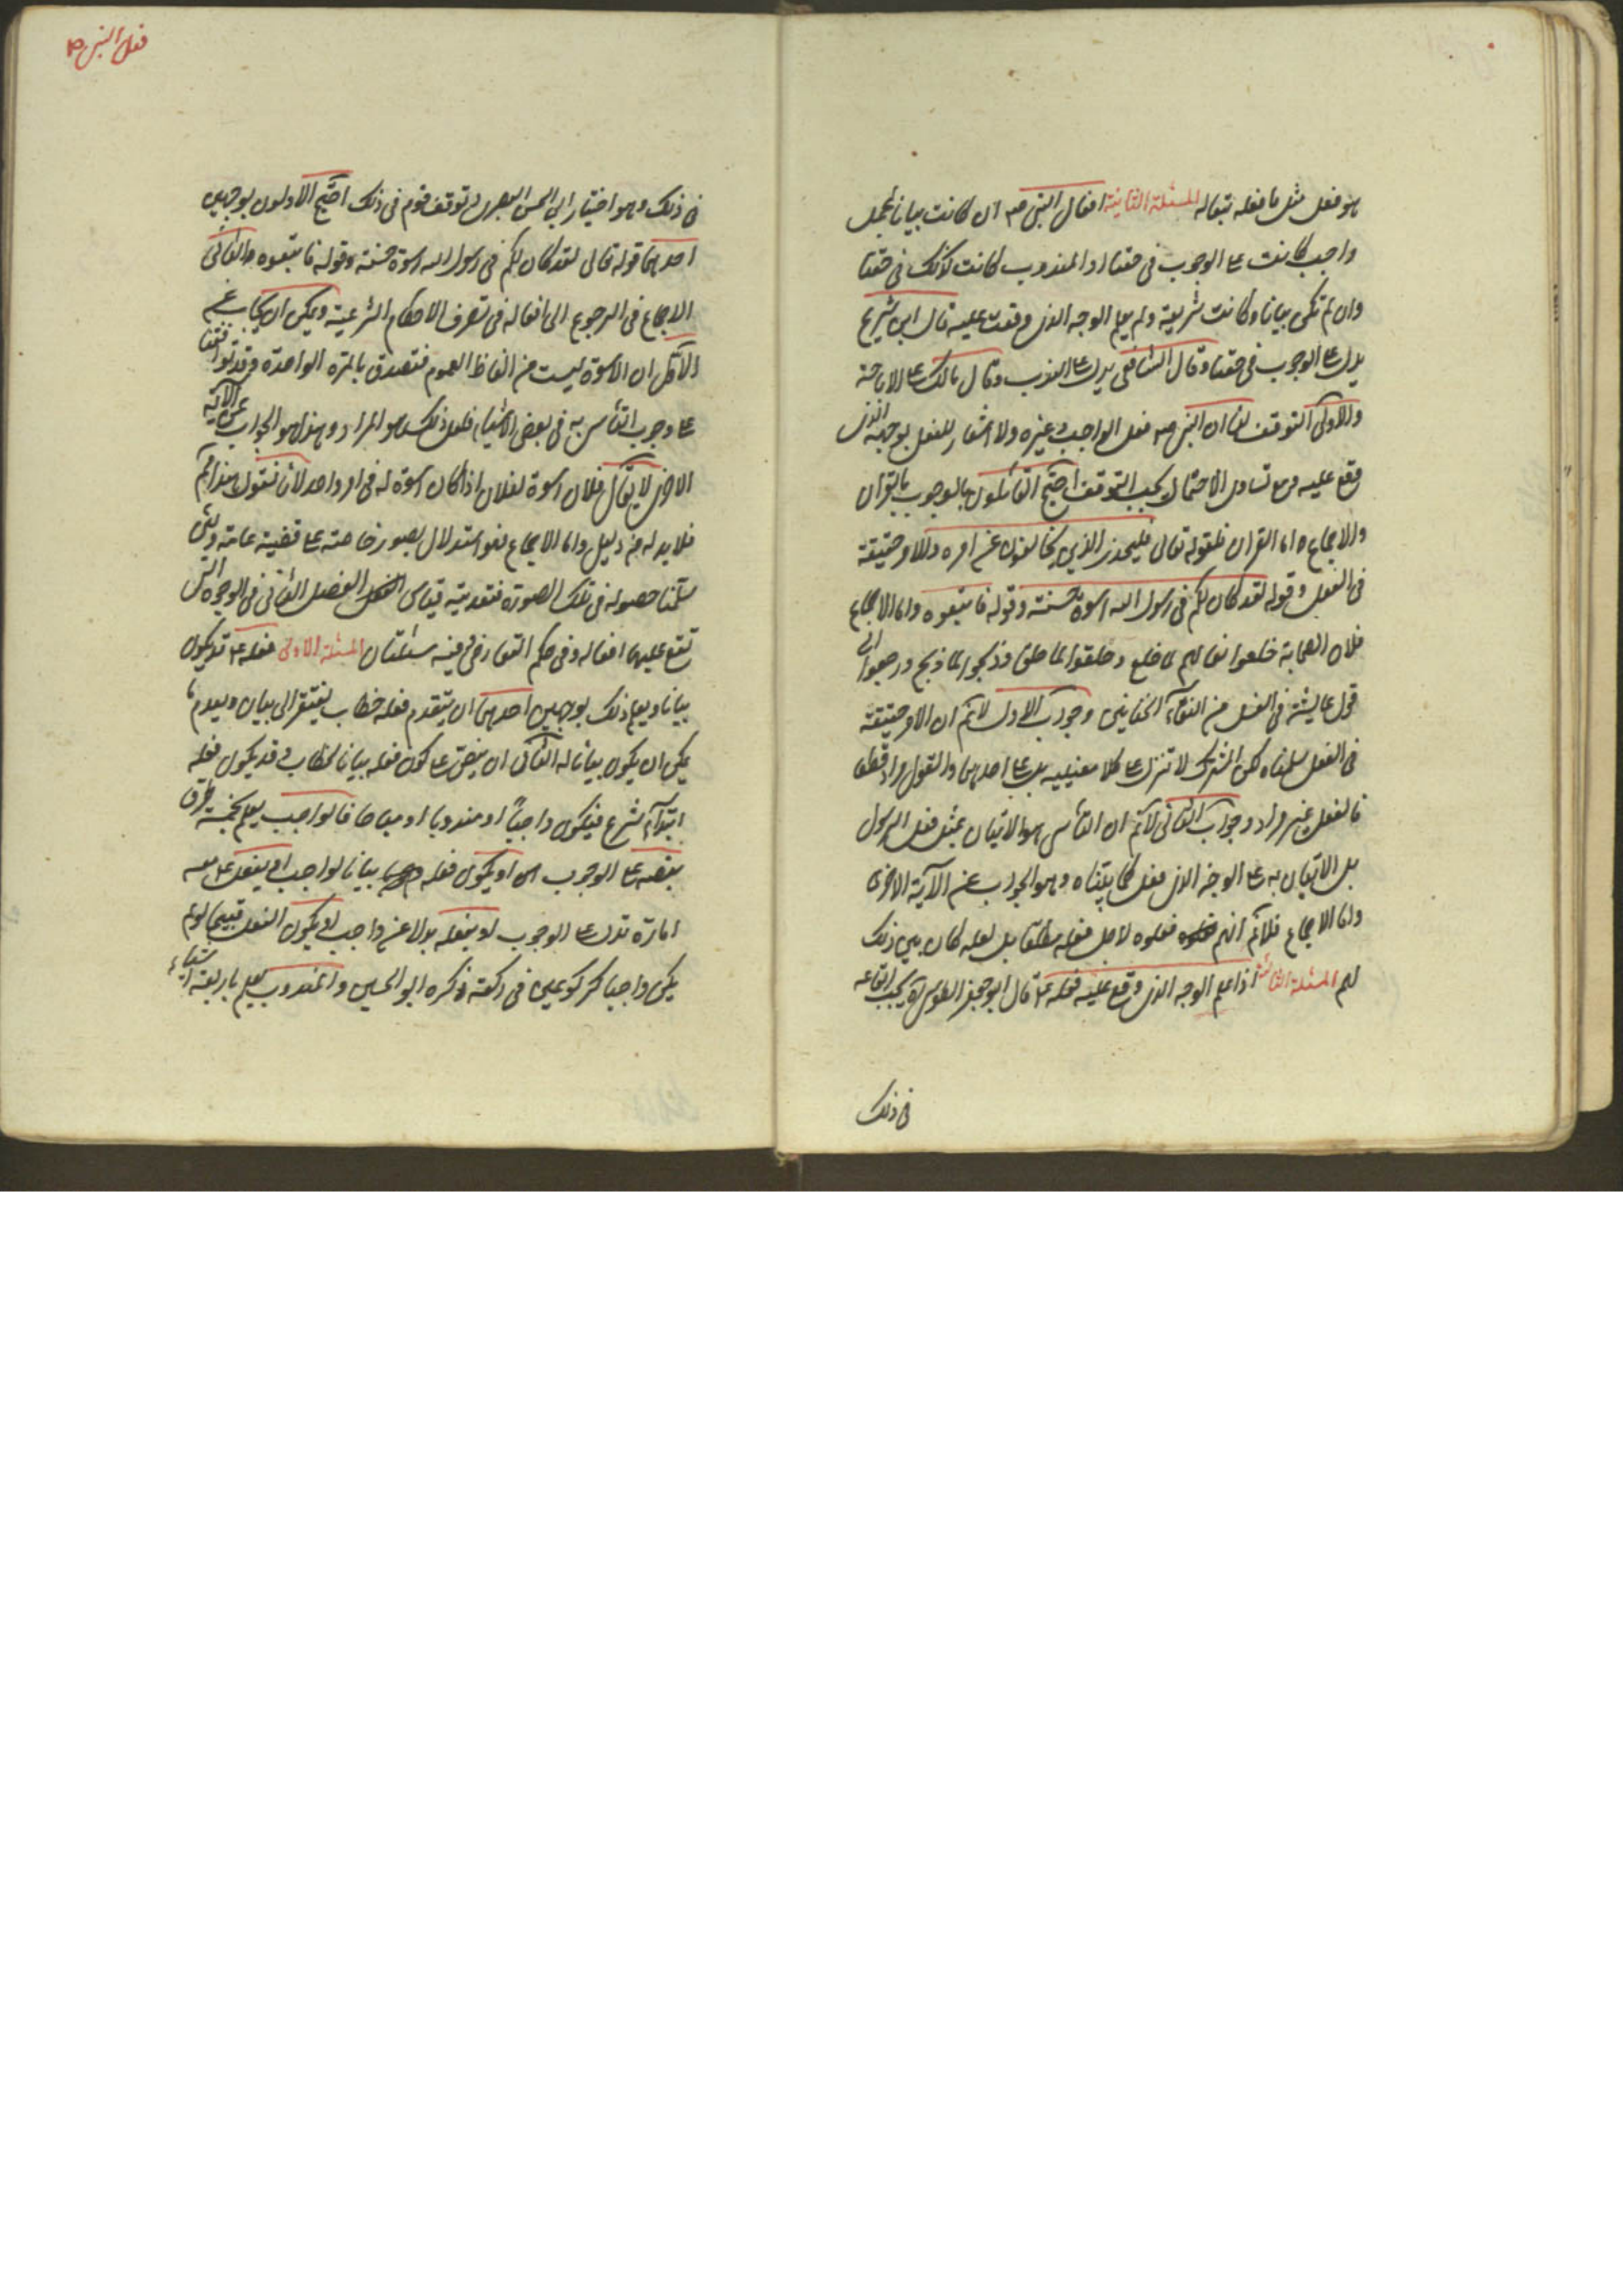 هو فعل مثل ما فعله تبعا له المسئلة الثانية افعال النبى ص ان كانت بيانا لمجمل
واجب كانت ع الوجوب فى حقنا او المندوب كانت كذلك فى حقنا
وان لم تكن بيانا وكانت شرعية ولم يعلم الوجه الذى وقعت عليه قال ابن شريح
يدل ع الوجوب فى حقنا وقال الشافعى يدل ع الندب وقال مالك ع الاباحة
والاولى التوقف لنا ان النبى ص فعل الواجب وغيره ولا اشعار للفعل بوجهه الذى
وقع عليه ومع تساوى الاحتمال يجب التوقف احتج القائلون بالوجوب بالقران
والاجماع اما القران فلقوله تعالى فليحذر الذين يخالفون عن امره والامر حقيقة
فى الفعل وقوله لقد كان لكم فى رسول الله اسوة حسنة وقوله فاتبعوه واما الاجماع
فلان الصحابة خلعوا نعالهم لما خلع وحلقوا لما حلق وذبحوا لما ذبح ورجعوا الى
قول عايشة فى الغسل من التقاء الختانين وجواب الاول لا نم ان الامر حقيقة
فى الفعل سلمناه لكن المشترك لا تنزل ع كلا معنييه بل ع احدهما والقول مراد قطعا
فالفعل غير مراد وجواب الثانى لا نم ان التأسى هو الاتيان بمثل فعل الرسول
بل الاتيان به ع الوجه الذى فعل كما بيناه وهو الجواب عن الآية الاخرى
واما الاجماع فلا نم انهم فعلوه لاجل فعله مطلقا بل لعله كان بين ذلك
لهم المسئلة الثالثة اذا علم الوجه الذى وقع عليه فعله ع قال ابو جعفر الطوسى ره يجب اتباعه
فى ذلك
فعل النبى ص
فى ذلك وهو اختيار ابى الحسن البصرى وتوقف قوم فى ذلك احتج الاولون بوجهين
احدهما قوله تعالى لقد كان لكم فى رسول الله اسوة حسنة وقوله فاتبعوه والثانى
الاجماع فى الرجوع الى افعاله فى تعرف الاحكام الشرعية ويمكن ان يجاب عن
الاول ان الاسوة ليست من الفاظ العموم فتصدق بالمرة الواحدة وقد توافقنا
ع وجوب التأسى به فى بعض الاشياء فلعل ذلك هو المراد وهذا هو الجواب عن الآية
الاخرى لا يقال فلان اسوة لفلان اذا كان اسوة له فى امر واحد لانا نقول هذا نم
فلا بد له من دليل واما الاجماع فهو استدلال بصور خاصة ع قضية عامة ولئن
سلمنا حصوله فى تلك الصورة فتعديته قياس الفصل الثانى فى الوجوه التى
تقع عليها افعاله وفى حكم التعارض وفيه مسئلتان المسئلة الاولى فعله ع قد يكون
بيانا ويعلم ذلك بوجهين احدهما ان يتقدم فعله خطاب يفتقر الى بيان ويعدم ما
يمكن ان يكون بيانا له الثانى ان ينص ع كون فعله بيانا لخطاب وقد يكون فعله
ابتداء شرع فيكون واجبا او مندوبا او مباحا فالواجب يعلم بخمسة طرق
بنصه ع الوجوب او يكون فعله بيانا لواجب او يفعل ع معه
امارة تدل ع الوجوب او يفعله بدلا عن واجب او يكون الفعل قبيحا لو لم
يكن واجبا كركوعين فى ركعة ذكره ابو الحسين والمندوب يعلم باربعة اشياء